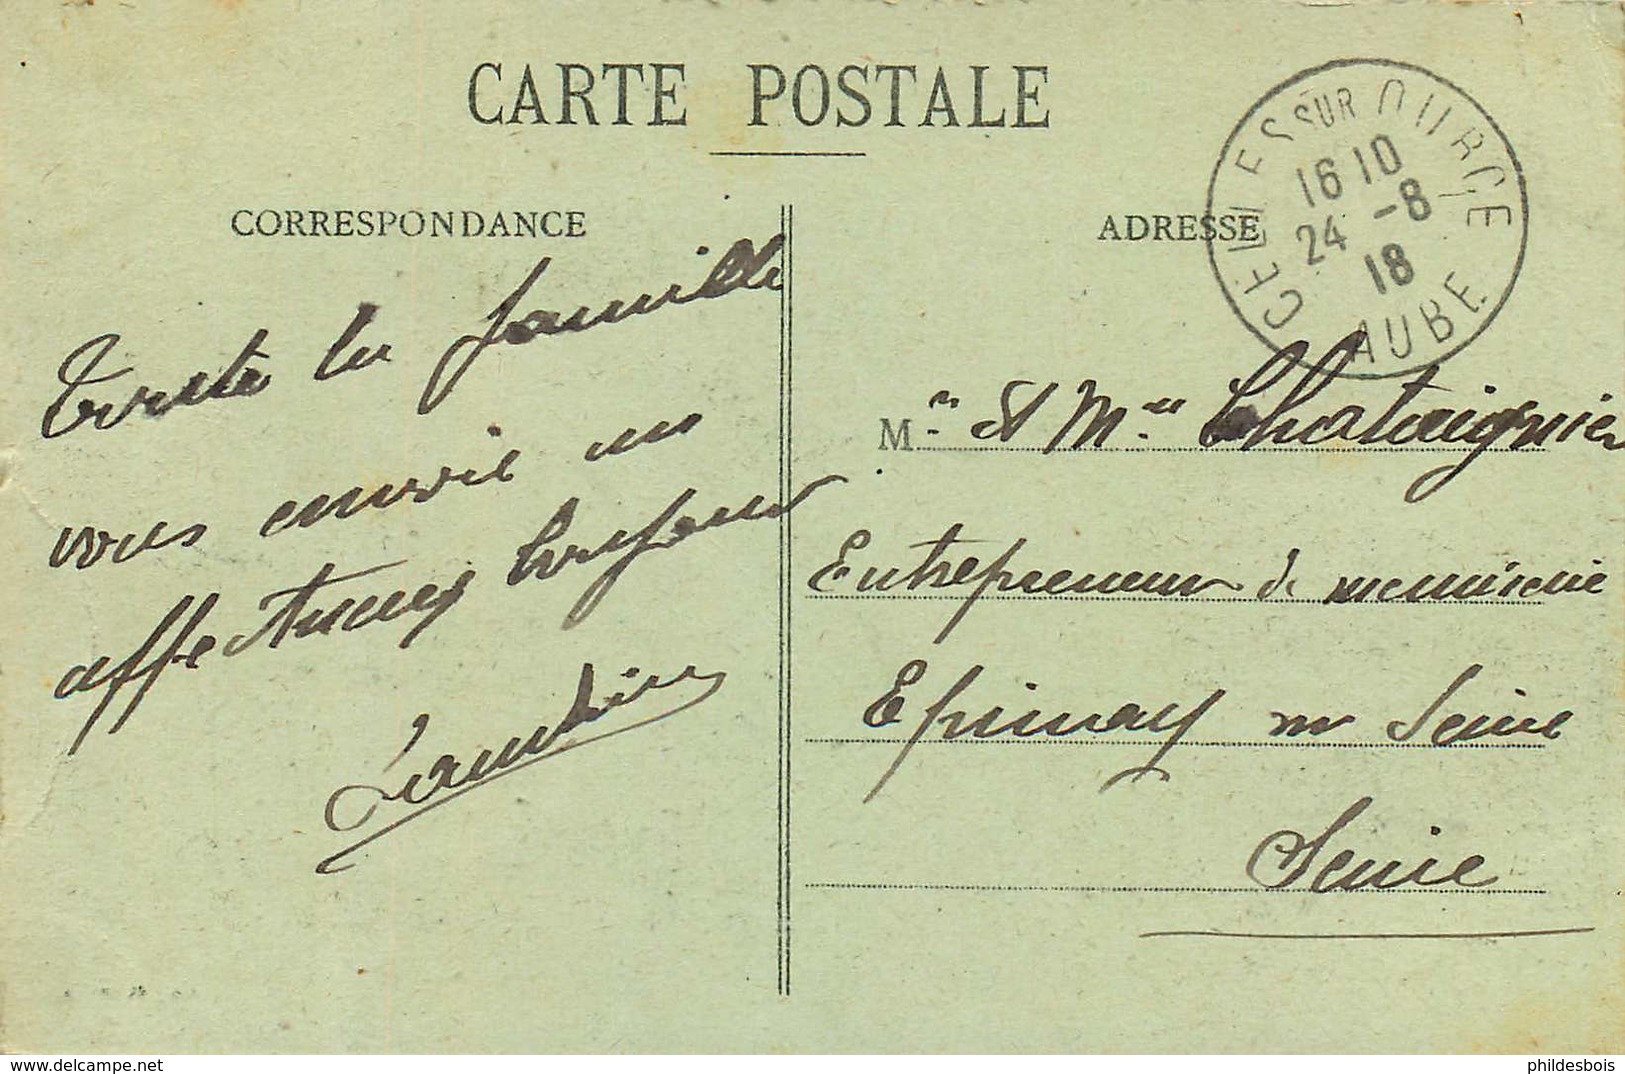 CARTE POSTALE
CORRESPONDANCE
ADRESSE
CELLES SUR OURCE
16 10
24 -8
18
AUBE
Toute la famille
vous envoie un
affectueux bonjour
Mr et Mme Chataignier
Entrepreneur de menuiserie
Epinay sur Seine
Seine
delcampe.net
phildesbois